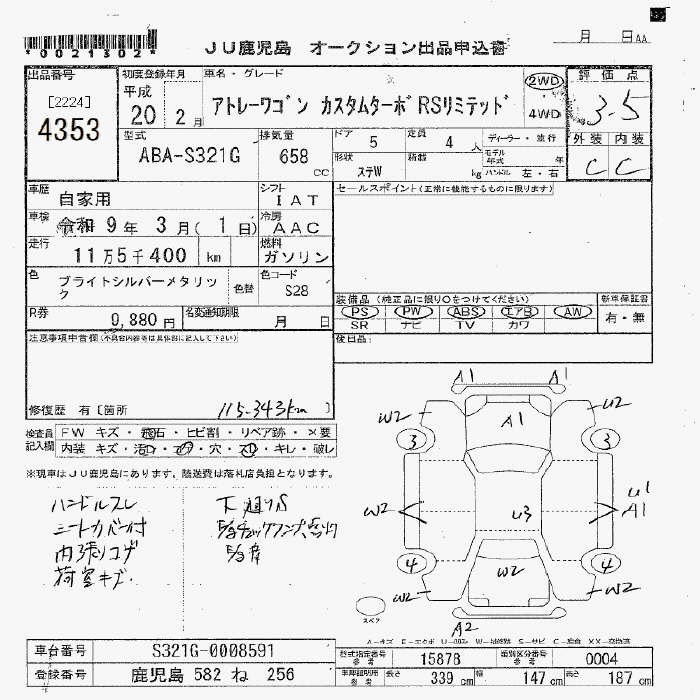 *0021302*
JU鹿児島 オークション出品申込書
月 日AA
出品番号
[2224]
4353
初度登録年月
平成
20 2月
車名・グレード
アトレーワゴン カスタムターボRSリミテッド
2WD
4WD
評価点
3.5
外装 内装
C C
型式
ABA-S321G
排気量
658
cc
ドア 5
定員 4 人
ディーラー・並行
形状 ステW
積載 kg
モデル年式 年
ハンドル 左・右
車歴 自家用
シフト IAT
セールスポイント(正常に機能するものに限ります)
車検 令和 9年 3月( 1日)
冷房 AAC
走行 11万5千400 km
燃料 ガソリン
色 ブライトシルバーメタリック
色替
色コード S28
装備品(純正品に限り○をつけてください)
新車保証書
PS PW ABS エアB AW
有・無
SR ナビ TV カワ
R券 9,880円
名変通知期限 月 日
後日品:
注意事項申告欄(不具合内容等は具体的に記入して下さい)
修復歴 有〔箇所 115-343km 〕
検査員記入欄
FW キズ・飛石・ヒビ割・リペア跡・×要
内装 キズ・汚れ・コゲ・穴・スレ・キレ・破レ
※現車はJU鹿児島にあります。陸送費は落札店負担となります。
ハンドルスレ
シートカバー付
内張りコゲ
荷室キズ
下廻りS
A1 A1
W2 A1 U2
3 3
W2 U3 U1
A1
4 4
W2 W2 W2
スペア
A2
車台番号 S321G-0008591
登録番号 鹿児島 582 ね 256
型式指定番号 参考 15878
類別区分番号 参考 0004
車庫証明用 参考 長さ 339 cm 幅 147 cm 高さ 187 cm